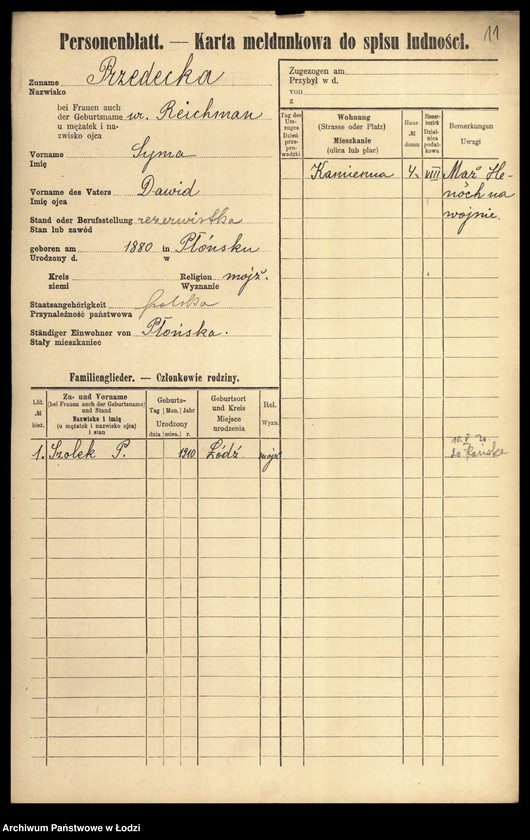 11
Personenblatt. — Karta meldunkowa do spisu ludności.
Zuname
Nazwisko
Przedecka
bei Frauen auch
der Geburtsname
u mężatek i na-
zwisko ojca
ur. Reichman
Vorname
Imię
Syma
Vorname des Vaters
Imię ojca
Dawid
Stand oder Berufsstellung
Stan lub zawód
rezerwistka
geboren am 1880 in Płońsku
Urodzony d. w
Kreis
ziemi
Religion
Wyznanie
mojż.
Staatsangehörigkeit
Przynależność państwowa
polska
Ständiger Einwohner von
Stały mieszkaniec
Płońska.
Zugezogen am
Przybył w d.
von
z
Tag des
Um-
zuges
Dzień
prze-
pro-
wadzki
Wohnung
(Strasse oder Platz)
Mieszkanie
(ulica lub plac)
Haus-
№
domu
Steuer-
bezirk
Dziel-
nica
podat-
kowa
Bemerkungen
Uwagi
Kamienna 4 VIII Mąż He-
noch na
wojnie.
Familienglieder. — Członkowie rodziny.
Lfd.
№
bież.
Zu- und Vorname
(bei Frauen auch der Geburtsname)
und Stand
Nazwisko i imię
(u mężatek i nazwisko ojca)
i stan
Geburts-
Tag | Mon. | Jahr
Urodzony
dnia | mies. | r.
Geburtsort
und Kreis
Miejsce
urodzenia
Rel.
Wyzn.
1. Szolek P. 1910 Łódź mojż
do
Archiwum Państwowe w Łodzi